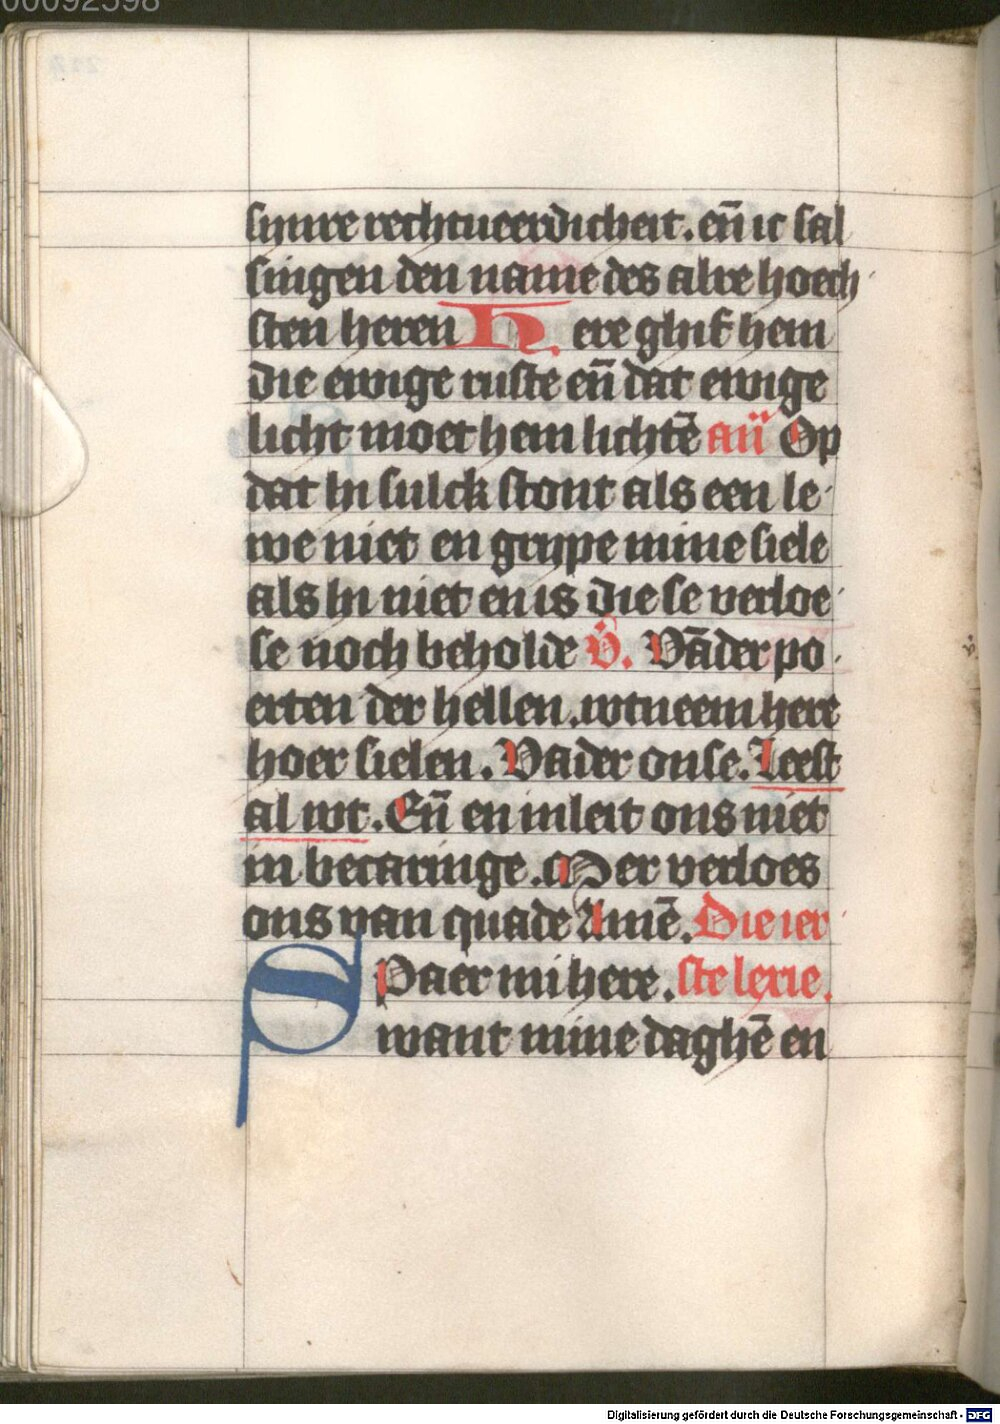 00092598
sijnre rechtueerdicheit. en̄ ic sal
singen den name des alre hoech
sten heren Here ghif hem
die ewige ruste en̄ dat ewige
licht moet hem lichtē an̄ Op
dat hi sulck stont als een le
we niet en grype mine siele
als hi niet en is die se verloe
se noch beholde V̄. Vāder po
erten der hellen. wtneem here
hoer sielen. Vader onse. Leest
al wt. En̄ en inleit ons niet
in becaringe. Mer verloes
ons van quade Amē. Die ier
Spaer mi here. ste lexie.
want mine daghē en
Digitalisierung gefördert durch die Deutsche Forschungsgemeinschaft - DFG